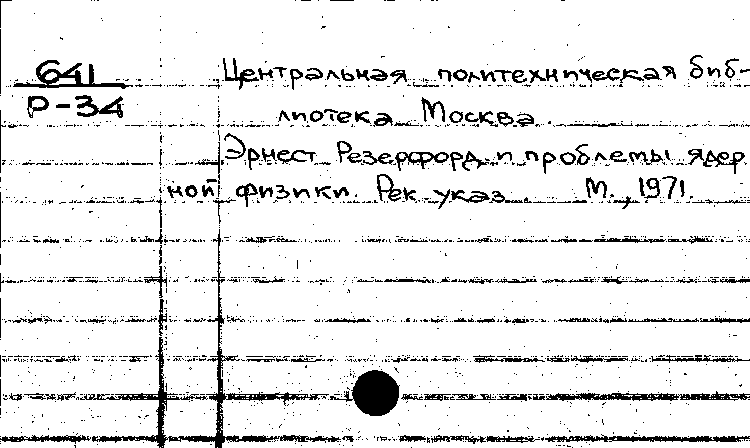 641
Р-34
Центральная политехническая биб-
лиотека Москва.
Эрнест Резерфорд и проблемы ядер
ной физики. Рек указ. М., 1971.